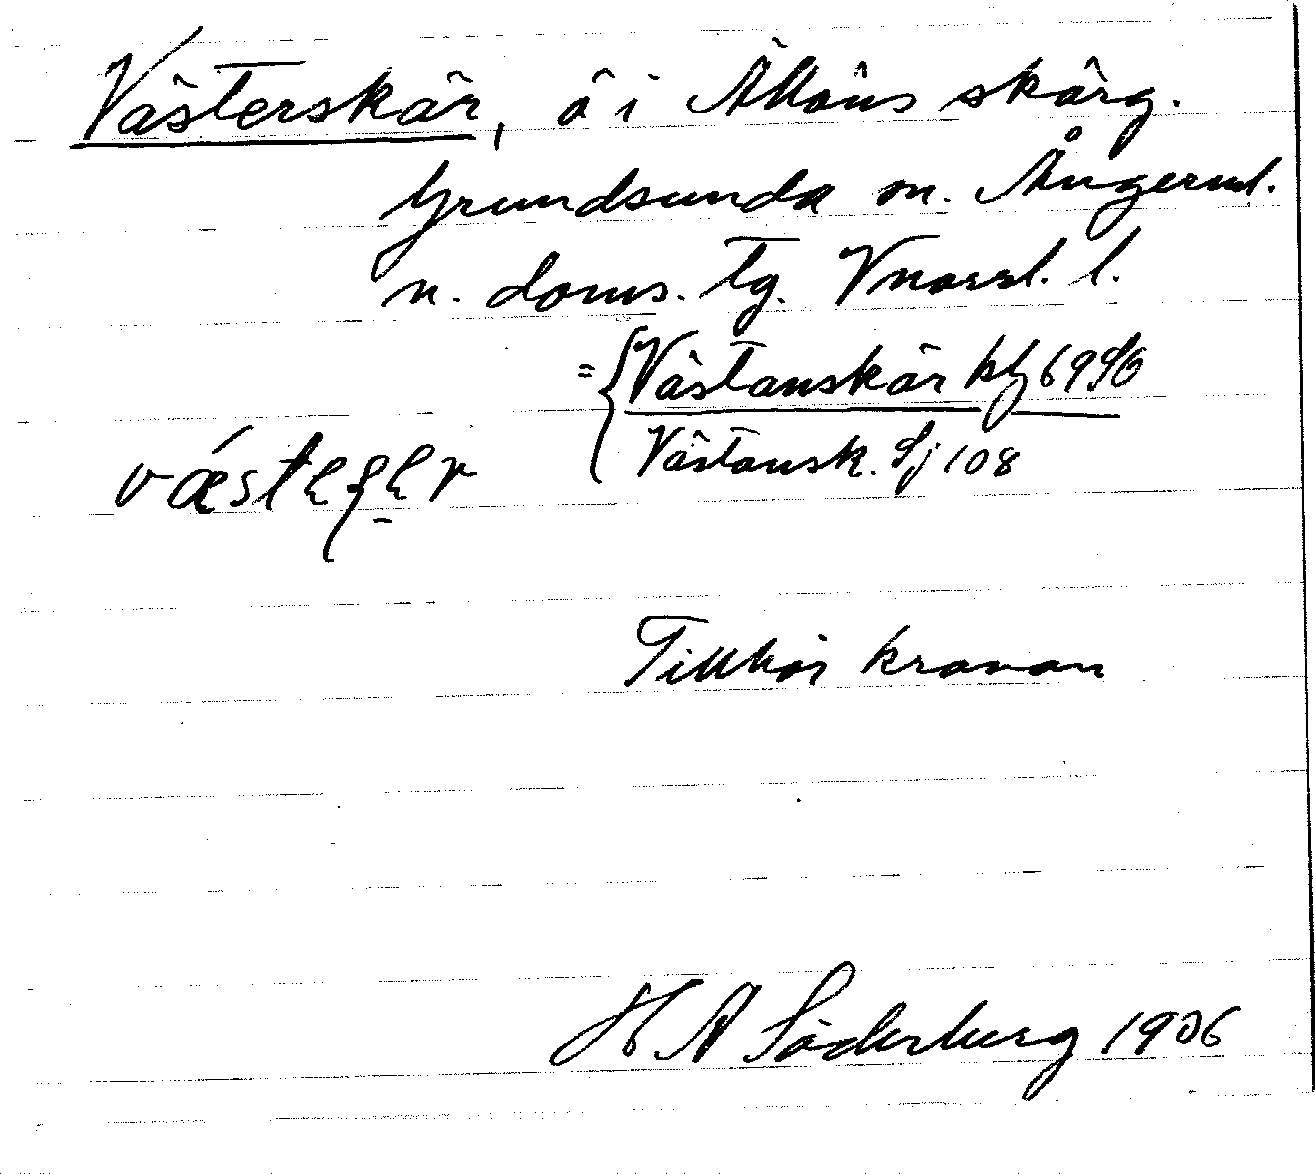 Västerskär, ö i Ällöns skärg.
Grundsunda sn. Ångerml.
n. doms. tg. Vnorrl. l.
= { Västanskär kbl 69 SO
Västansk. Sj 108
Tillhör kronan
H A Söderberg 1906